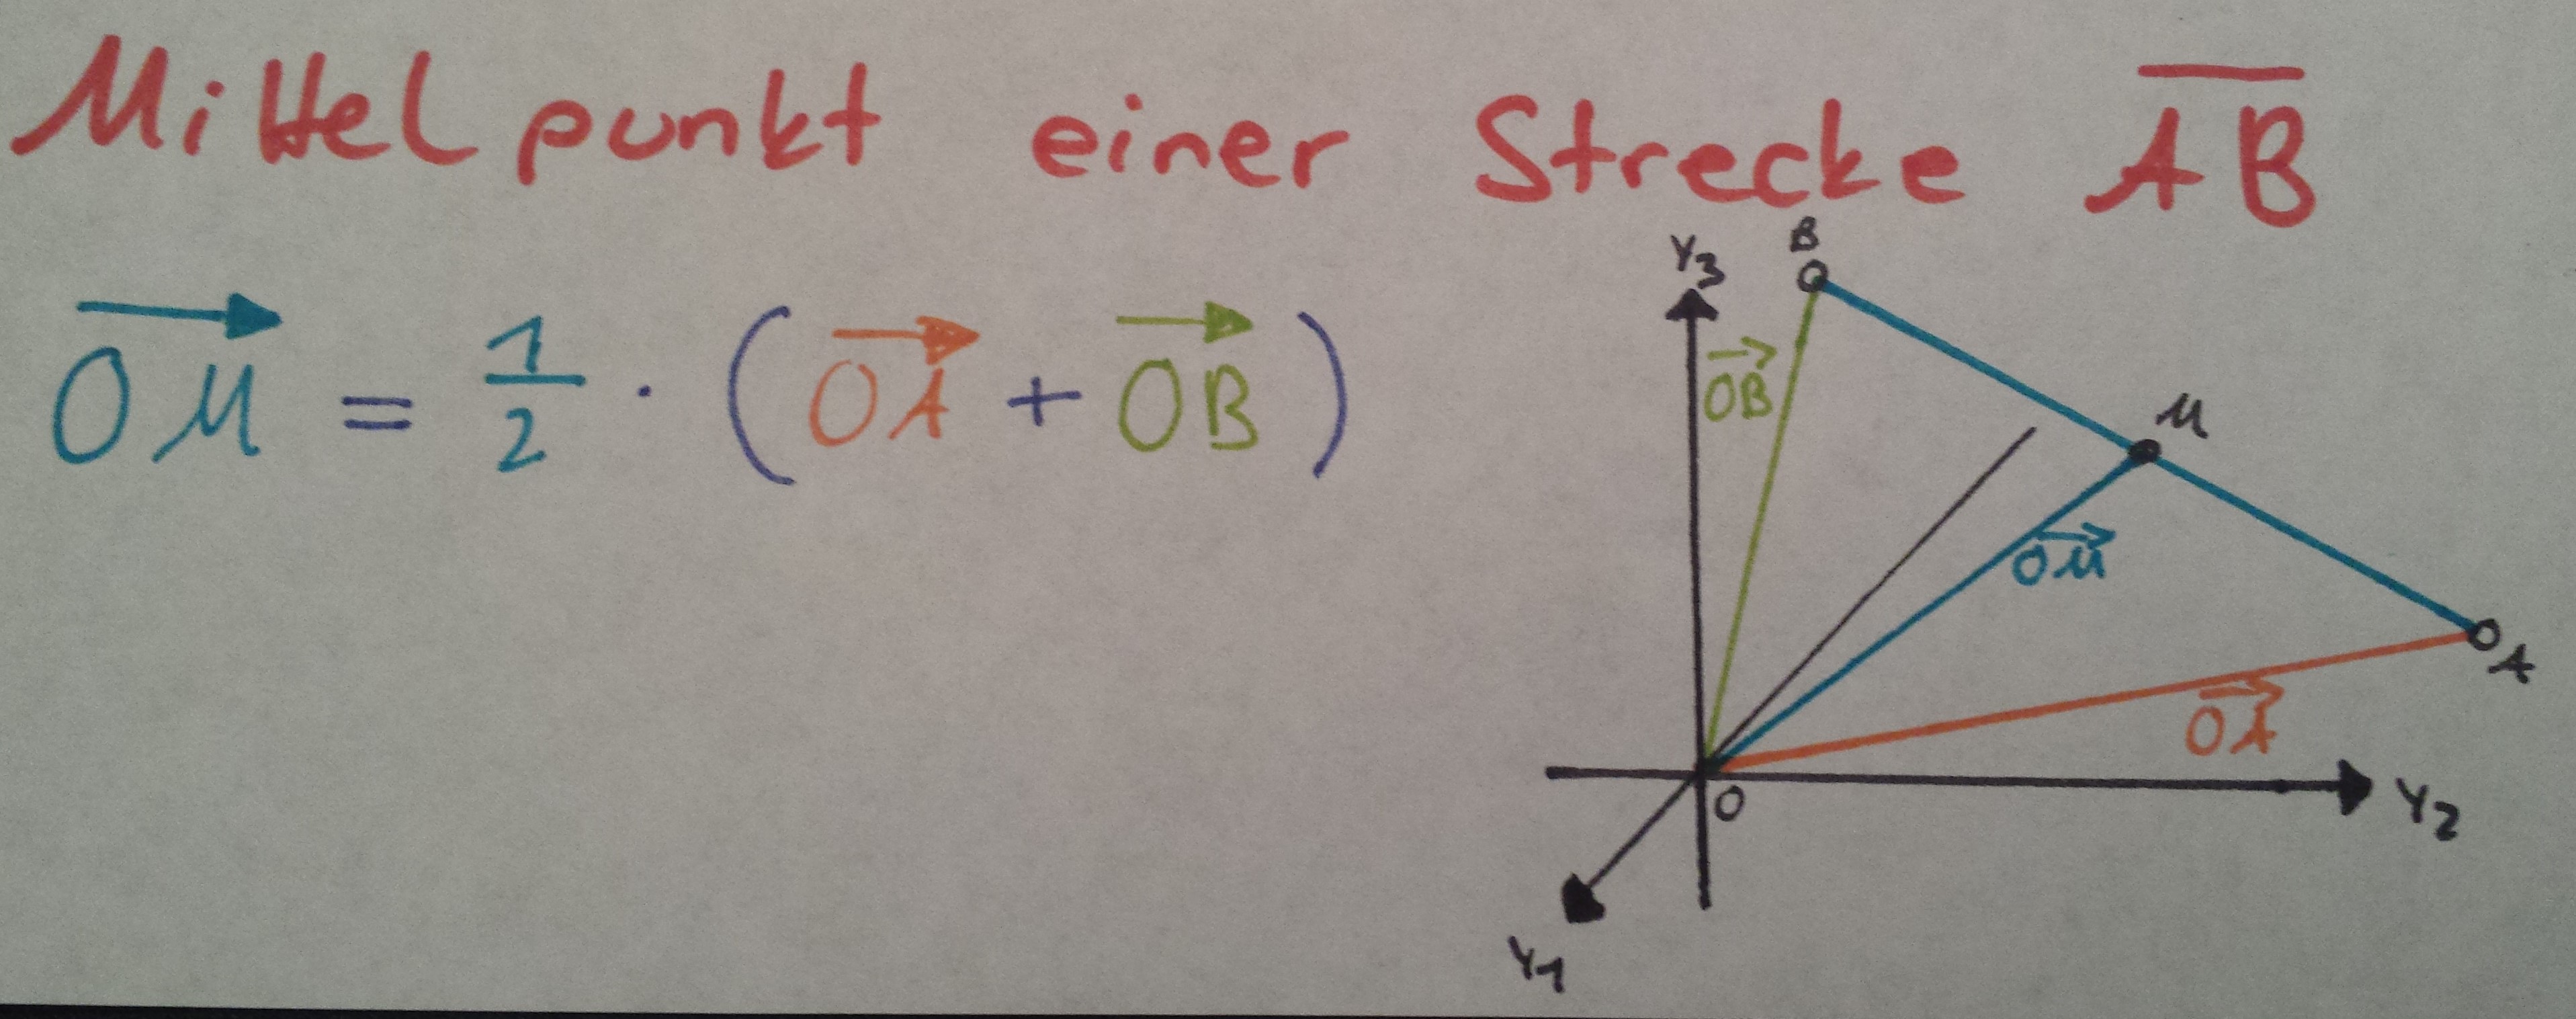 Mittelpunkt einer Strecke A̅B̅
O⃗M⃗ = 1/2 · (O⃗A⃗ + O⃗B⃗)
Y3
B
O⃗B⃗
M
O⃗M⃗
A
O⃗A⃗
O
Y2
Y1